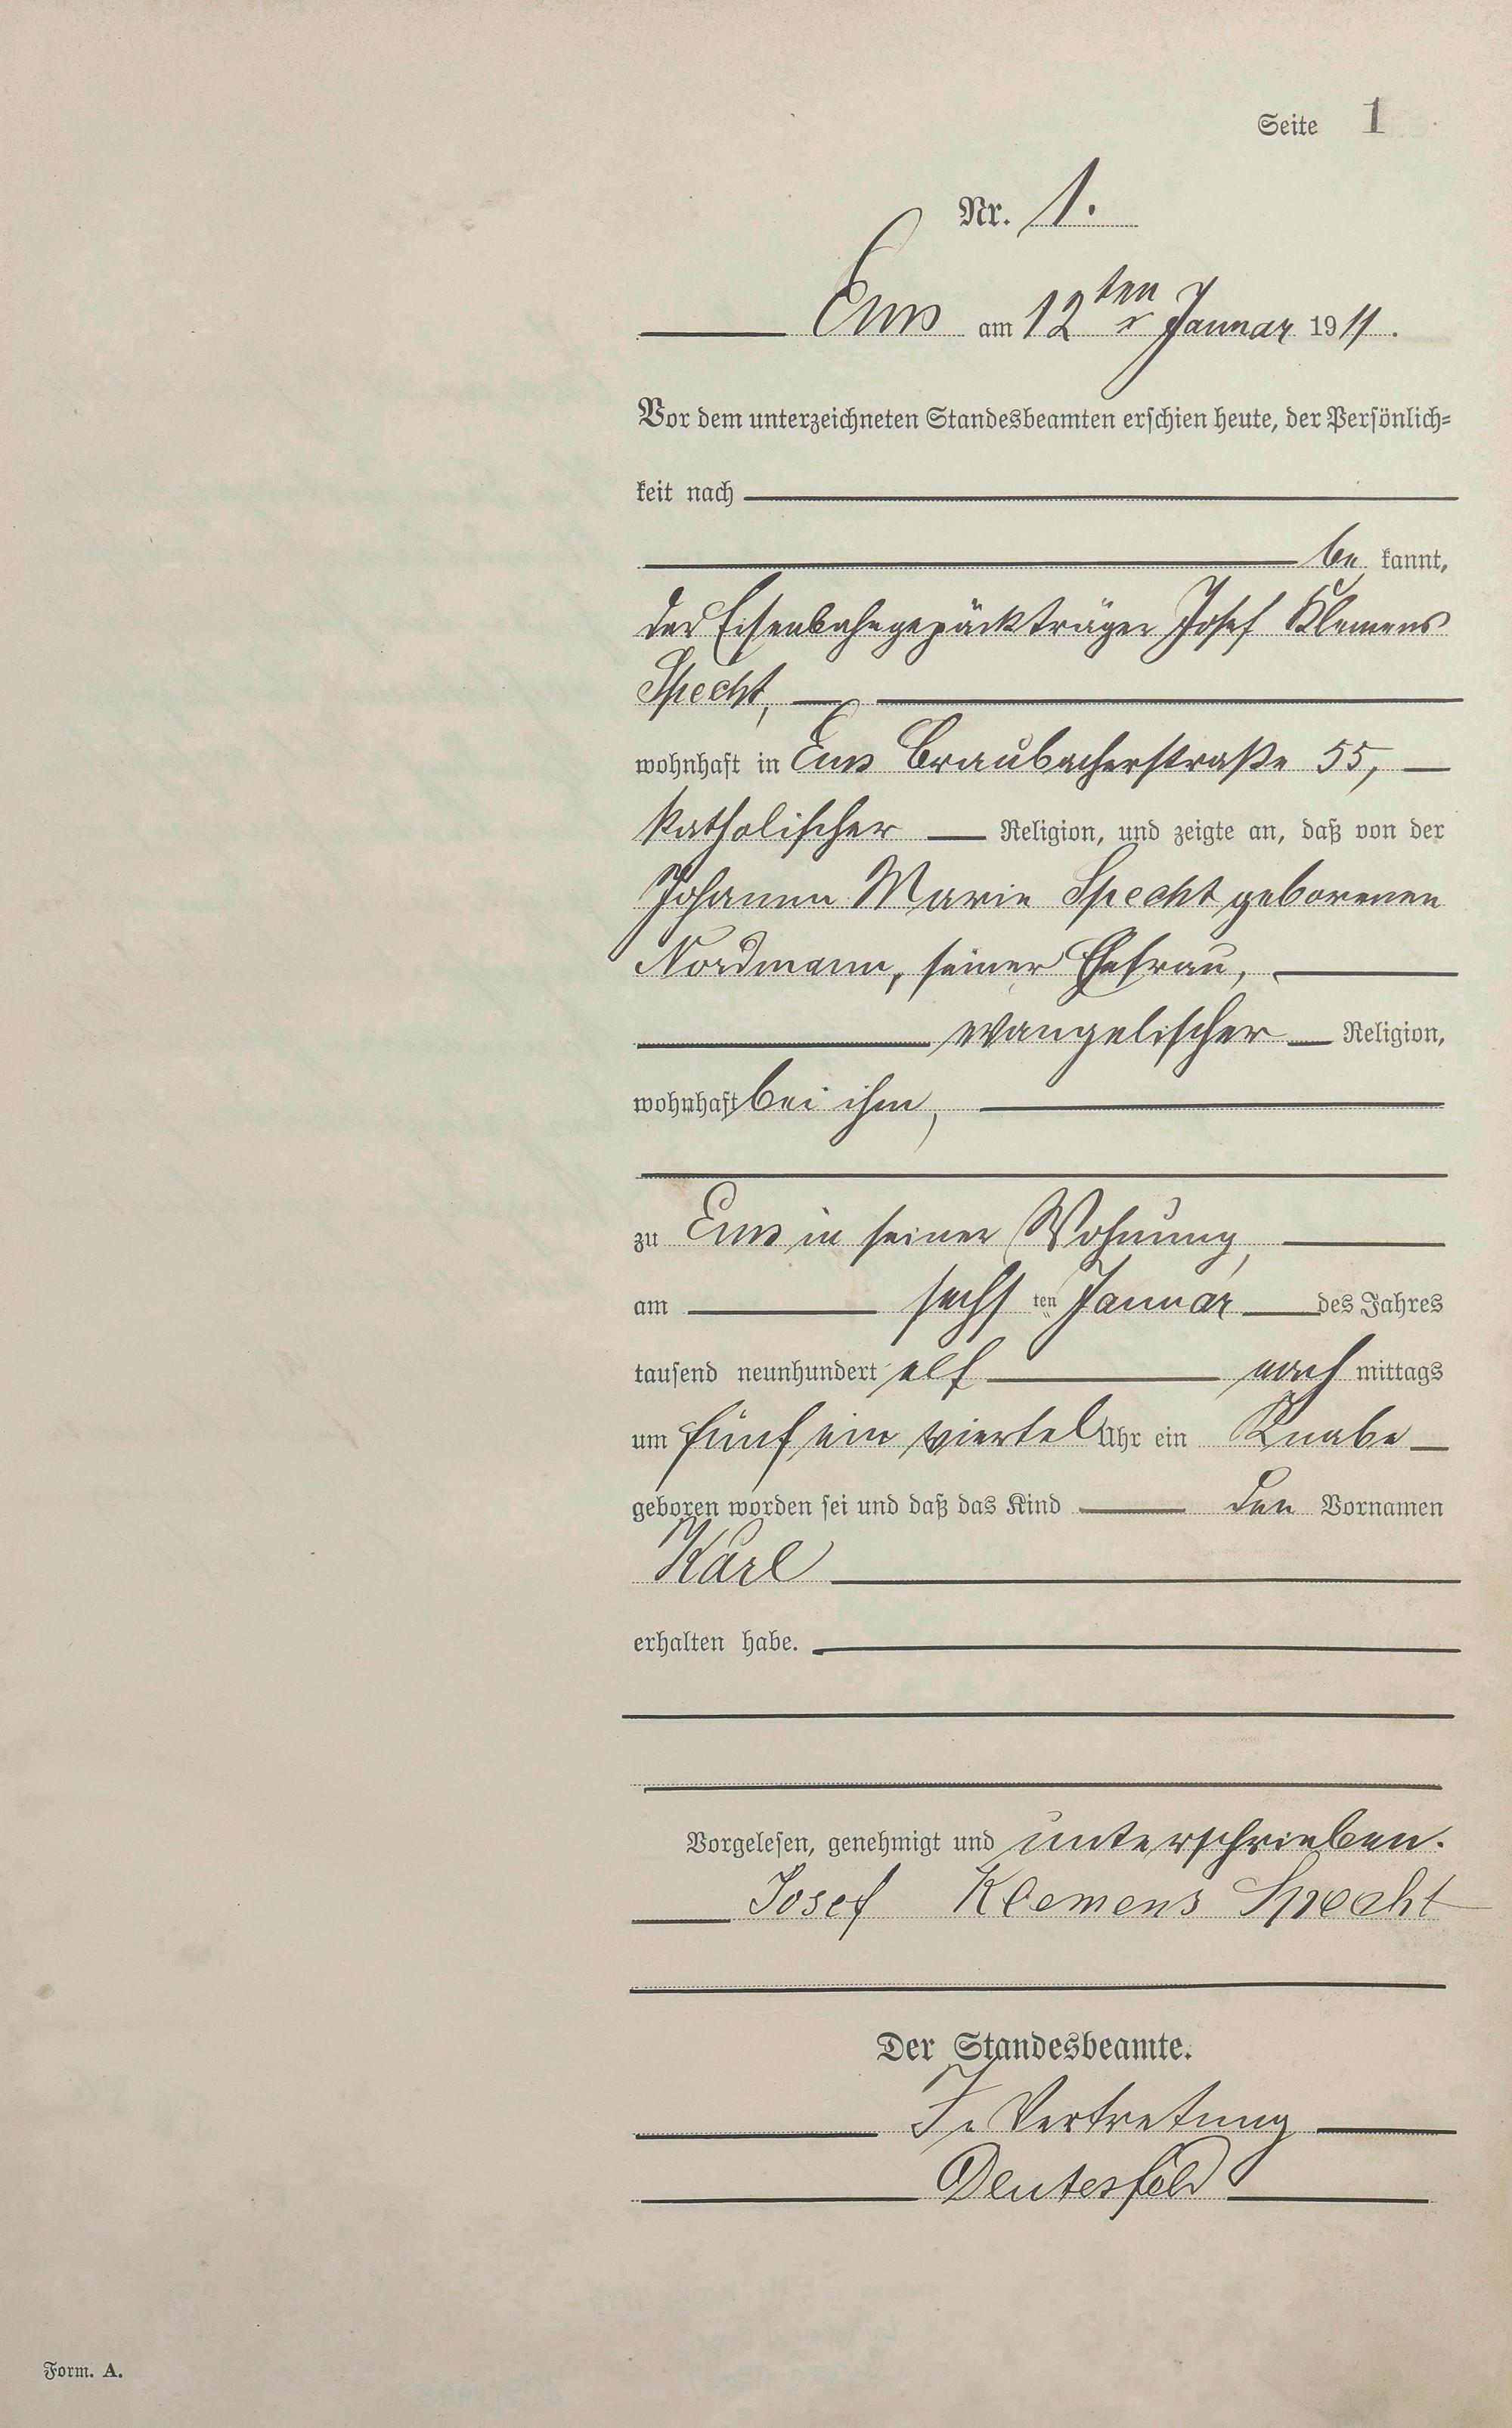 Seite 1
Nr. 1.
Ems am 12ten Januar 1911.
Vor dem unterzeichneten Standesbeamten erschien heute, der Persönlich-
keit nach
be kannt,
der Eisenbahngepäckträger Josef Klemens
Specht,
wohnhaft in Ems Braubacherstraße 55,
katholischer Religion, und zeigte an, daß von der
Johanna Marie Specht geborenen
Nordmann, seiner Ehefrau,
evangelischer Religion,
wohnhaft bei ihm,
zu Ems in seiner Wohnung,
am sechs ten Januar des Jahres
tausend neunhundert elf nach mittags
um fünf ein viertel Uhr ein Knabe
geboren worden sei und daß das Kind den Vornamen
Karl
erhalten habe.
Vorgelesen, genehmigt und unterschrieben.
Josef Klemens Specht
Der Standesbeamte.
In Vertretung
Deutesfeld
Form. A.